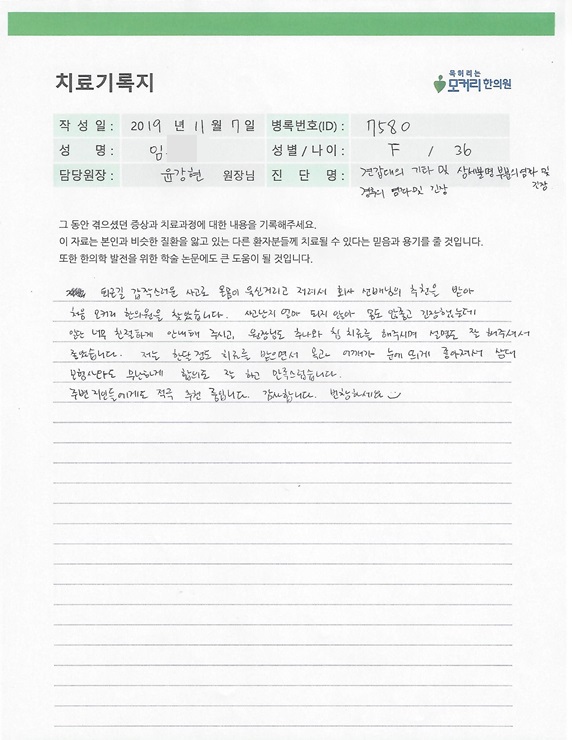 치료기록지
목허리는
모커리한의원
작 성 일 : 2019 년 11 월 7 일 병록번호(ID) : 7580
성 명 : 임 성별 / 나이 : F / 36
담당원장 : 윤강현 원장님 진 단 명 : 견갑대의 기타 및 상세불명 부분의 염좌 및 긴장
경추의 염좌 및 긴장
그 동안 겪으셨던 증상과 치료과정에 대한 내용을 기록해주세요.
이 자료는 본인과 비슷한 질환을 앓고 있는 다른 환자분들께 치료될 수 있다는 믿음과 용기를 줄 것입니다.
또한 한의학 발전을 위한 학술 논문에도 큰 도움이 될 것입니다.
퇴근길 갑작스러운 사고로 온몸이 욱신거리고 저려서 회사 선배님의 추천을 받아
처음 모커리 한의원을 찾았습니다. 사고난지 얼마 되지 않아 몸도 안좋고 긴장했는데
너무 친절하게 안내해 주시고, 원장님도 추나와 침 치료를 해주시며 설명도 잘 해주셔서
좋았습니다. 저는 한달정도 치료를 받으면서 목과 어깨가 눈에 띄게 좋아져서
보험사와도 무난하게 합의도 잘 하고 만족스럽습니다.
주변 지인들에게도 적극 추천 중입니다. 감사합니다. 번창하세요